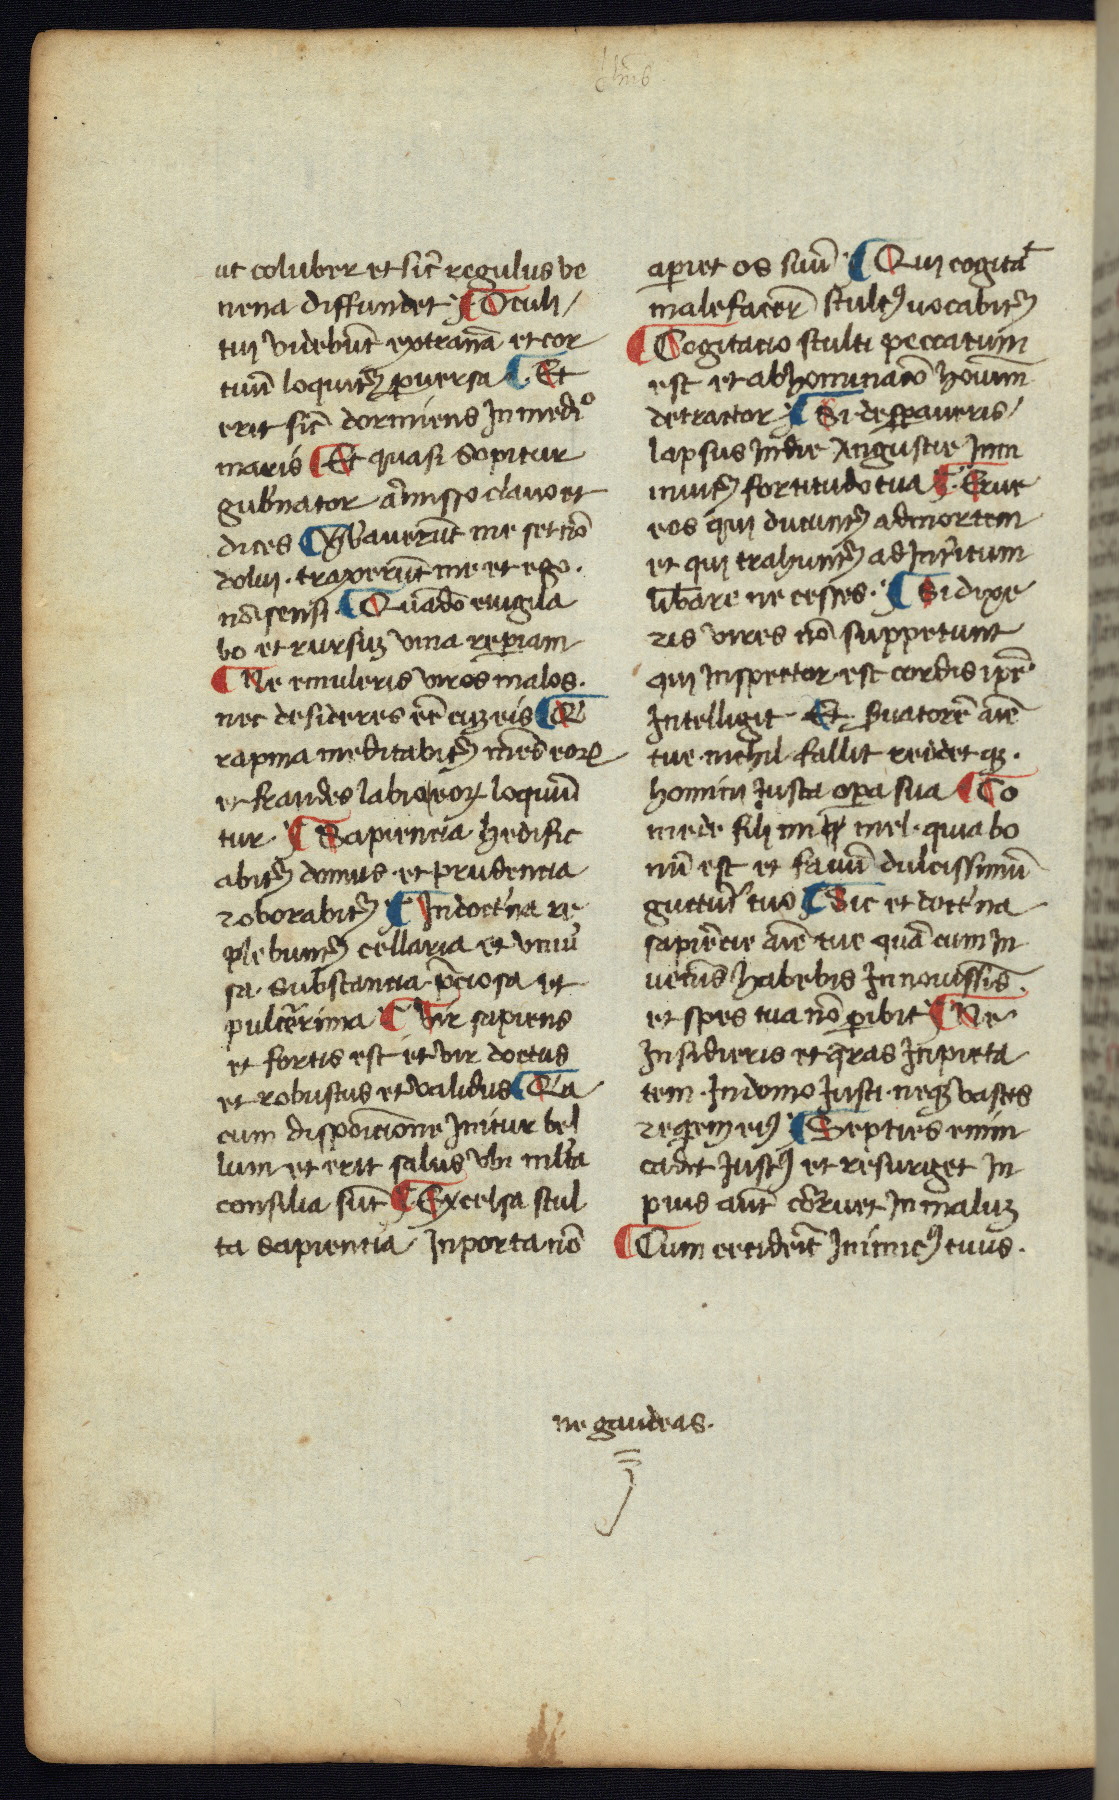 ut coluber et sic̄ regulus ve
nena diffundet ¶ Oculi /
tui videbūt extranā et cor
tuū loquit᷑ ꝑuersa ¶ Et
erit sic̄ dormiens In medio
maris ¶ Et quasi sopitur
gub̄nator am̄isso clauo et
dices ¶ Vb̄auerūt me set nō
dolui · traxerūt me et ego ·
nō sensi · ¶ Quādo euigila
bo et rursuꝫ vina reꝑiam
¶ Ne emuleris viros malos ·
nec desideres eē cuꝫ eis ¶ Q
rapina meditabit᷑ mēs eoꝝ
et fraudes labia eoꝝ loquū
tur · ¶ Sapiencia hedific
abit᷑ domus · et prudencia
roborabit᷑ ¶ In doct'na re
plebunt᷑ cellaria et vniu'
sa · substancia · p̄ciosa et
pulcērima ¶ Vir sapiens
et fortis est et vir doctus
et robustus et validus ¶ Qa
cum disposicione Initur bel
lum et erit salus vbi mlta
consilia sūt ¶ Excelsa stul
ta sapientia In porta nō
aperiet os suū ¶ Qui cogitat
malefacer̄ stultꝰ vocabit᷑
¶ Cogitatio stulti peccatum
est et abhominacō hoīum
detractor ¶ Si desꝑaueris /
lapsus In die Angustie Inm
inuit᷑ fortitudo tua ¶ Erue
eos qui ducunt᷑ ad mortem
et qui trahunt᷑ ad Int'itum
lib̄are ne cesses · ¶ Si dixe
ris vires nō suppetunt
qui Inspector est cordis ip̄e
Intelligit · Et ẜuatorē aīe
tue nichil fallit reddet qꝫ ·
homini Iusta oꝑa sua ¶ Co
mede fili mi mel · quia bo
nū est et fauū dulcissimū
gutturi tuo ¶ Sic et doct'na
sapiēcie aīe tue quā cum In
ueneris habebis In nouissīs ·
et spes tua nō ꝑibit ¶ Ne
Insidieris et q̄ras Inpieta
tem · In domo Iusti · neqꝫ vastes
requiem eiꝰ ¶ Septies enim
cadit Iustꝰ et resurget In
pius aut̄ cōruet In maluꝫ
¶ Cum cecider̄it Inimicꝰ tuus ·
ne gaudeas ·